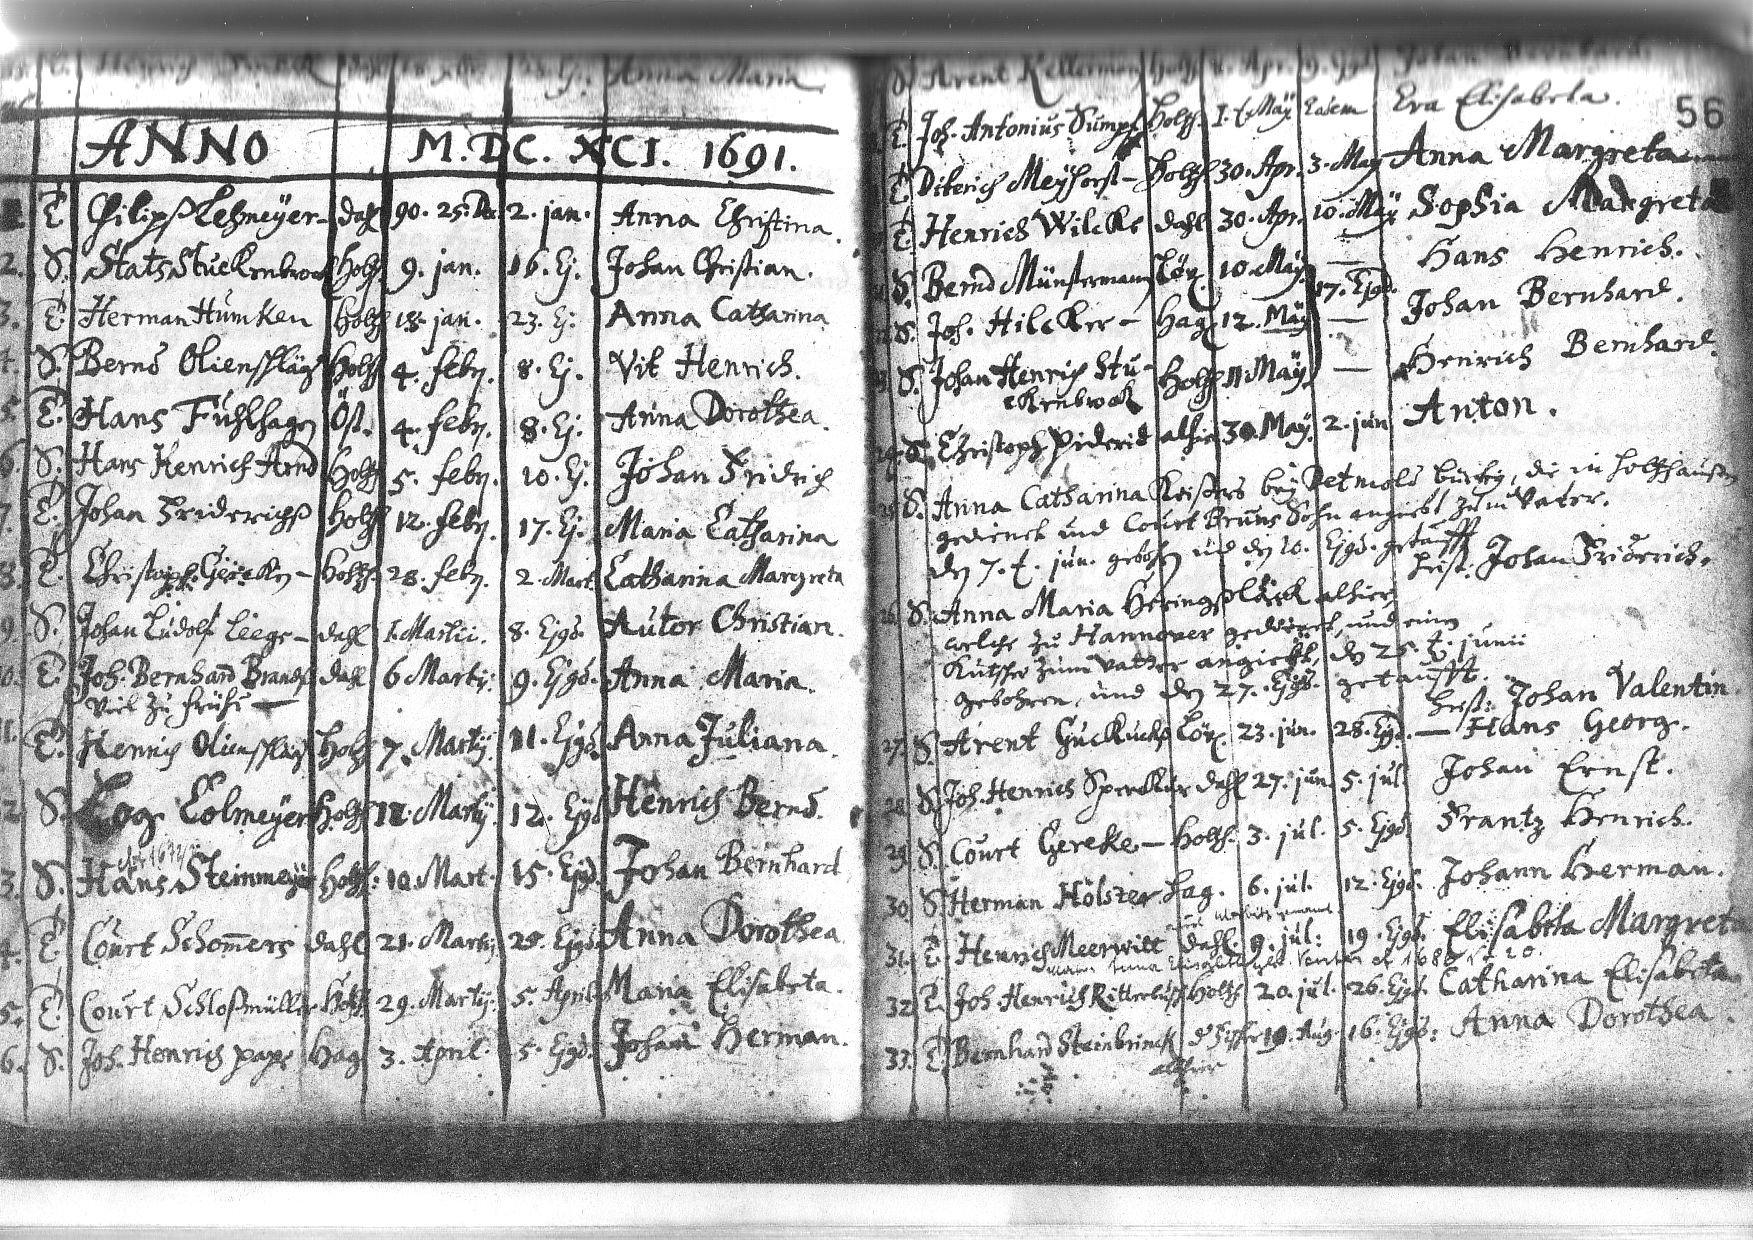 Anna Maria
ANNO M.DC.XCI. 1691.
T. Philips Lehmeyer - dahl 90. 25. De 2. jan. Anna Christina.
2. S. Stats Stuckenbrock Holzh 9. jan. 16. Ej. Johan Christian.
3. T. Herman Humken Holzh 18. jan. 23. Ej. Anna Catharina
4. S. Bernd Olienschläg Holzh 4. febr. 8. Ej. Vit Henrich.
5. T. Hans Fuhlhagen Öst. 4. febr. 8. Ej. Anna Dorothea.
6. S. Hans Henrich Arnd Holzh 5. febr. 10. Ej. Johan Fridrich
7. T. Johan Friderichs Holzh 12. febr. 17. Ej. Maria Catharina
8. T. Christoph Gereken - Holzh. 28. febr. 2. Mart. Catharina Margreta
9. S. Johan Ludolf Leege - dahl 1. Martii. 8. Ejgd. Autor Christian.
10. T. Joh. Bernhard Brands dahl 6 Martij. 9. Ejgd. Anna Maria.
viel zu frühe -
11. T. Henrich Olienschläg Holzh 7. Martij 11. Ejgd. Anna Juliana.
2. S. Colmeyer Holzh 11. Martij. 12. Ejgd Henrich Bernd.
3. S. Hans Steinmeyer Holzh: 10. Mart. 15. Ejgd. Johan Bernhard
4. T. Court Schomers dahl 21. Martij 25. Ejgd. Anna Dorothea
5. T. Court Schloßmüller Holzh 29. Martij. 5. April Maria Elisabeta.
6. S. Joh. Henrich pape Hag 3. April. 5. Ejgd. Johan Herman.
S. Arent Kellerman Holzh Apr. 9. Ejgd Johan Bernhard
56
T. Joh. Antonius Sump Holzh. 1. May Eadem Eva Elisabeta.
T. Diterich Meyhorst - Holzh 30. Apr. 3. May Anna Margreta
T. Henrich Wilcke dahl 30. Apr. 10. May Sophia Margreta
S. Bernd Münsterman Lör. 10. May. — Hans Henrich.
S. Joh. Hilcker - Hag 12. May 17. Ejgd. Johan Bernhard.
S. Johan Henrich Stu- Holzh 11 May. — Henrich Bernhard.
ckenbrock
24. S. Christoph Piderid alhie 30. May. 2. jun Anton.
25. S. Anna Catharina Keisers bey Detmold bürtig, die in Holzhausen
gedienet und Court Bruns Sohn angiebt zum Vater.
den 7. t. jun. gebohren und den 10. Ejgd. getaufft
heist: Johan Friderich.
26. S. Anna Maria alhier
welche zu Hannover gedienet, und einen
Kutscher zum Vather angiebt, den 25 t. junii
gebohren, und den 27. Ejgd. getaufft.
heist: Johan Valentin
27. S. Arent Guckucks Lör. 23. jun. 28. Ejgd. — Hans Georg.
28. S. Joh. Henrich Sprecker dahl 27. jun 5. jul. Johan Ernst.
29. S. Court Gereke - Holzh. 3. jul. 5. Ejgd. Frantz Henrich.
30. S. Herman Hölscher Hag. 6. jul. 12. Ejgd. Johann Herman.
31. T. Henrich Meerwitt dahl. 9. jul: 19. Ejgd. Elisabetha Margreta
32. T. Joh Henrich Ritterbusch Holzh 20. jul. 26. Ejgd. Catharina Elisabeta
33. T. Bernhard Steinbrinck 19. Aug. 16. Ejgd: Anna Dorothea.
alhier